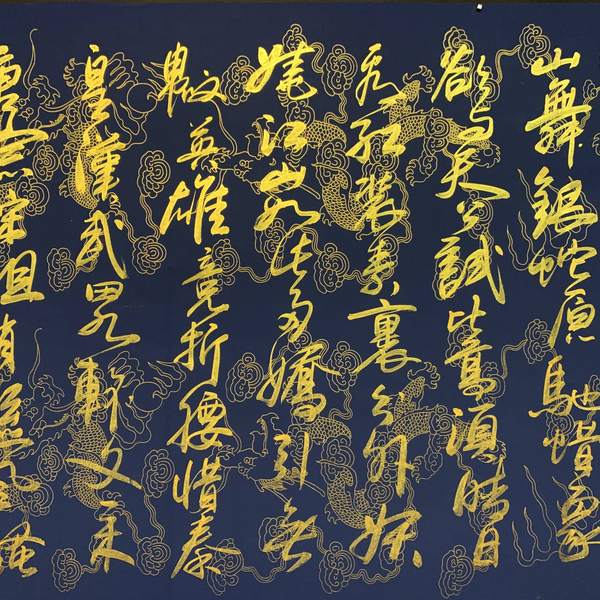 山舞銀蛇原馳蜡象
欲与天公試比高須晴日
看紅裝素裹分外妖
嬈江山如此多嬌引無
數英雄竞折腰惜秦
皇漢武畧輸文采
唐宗宋祖稍遜風騷